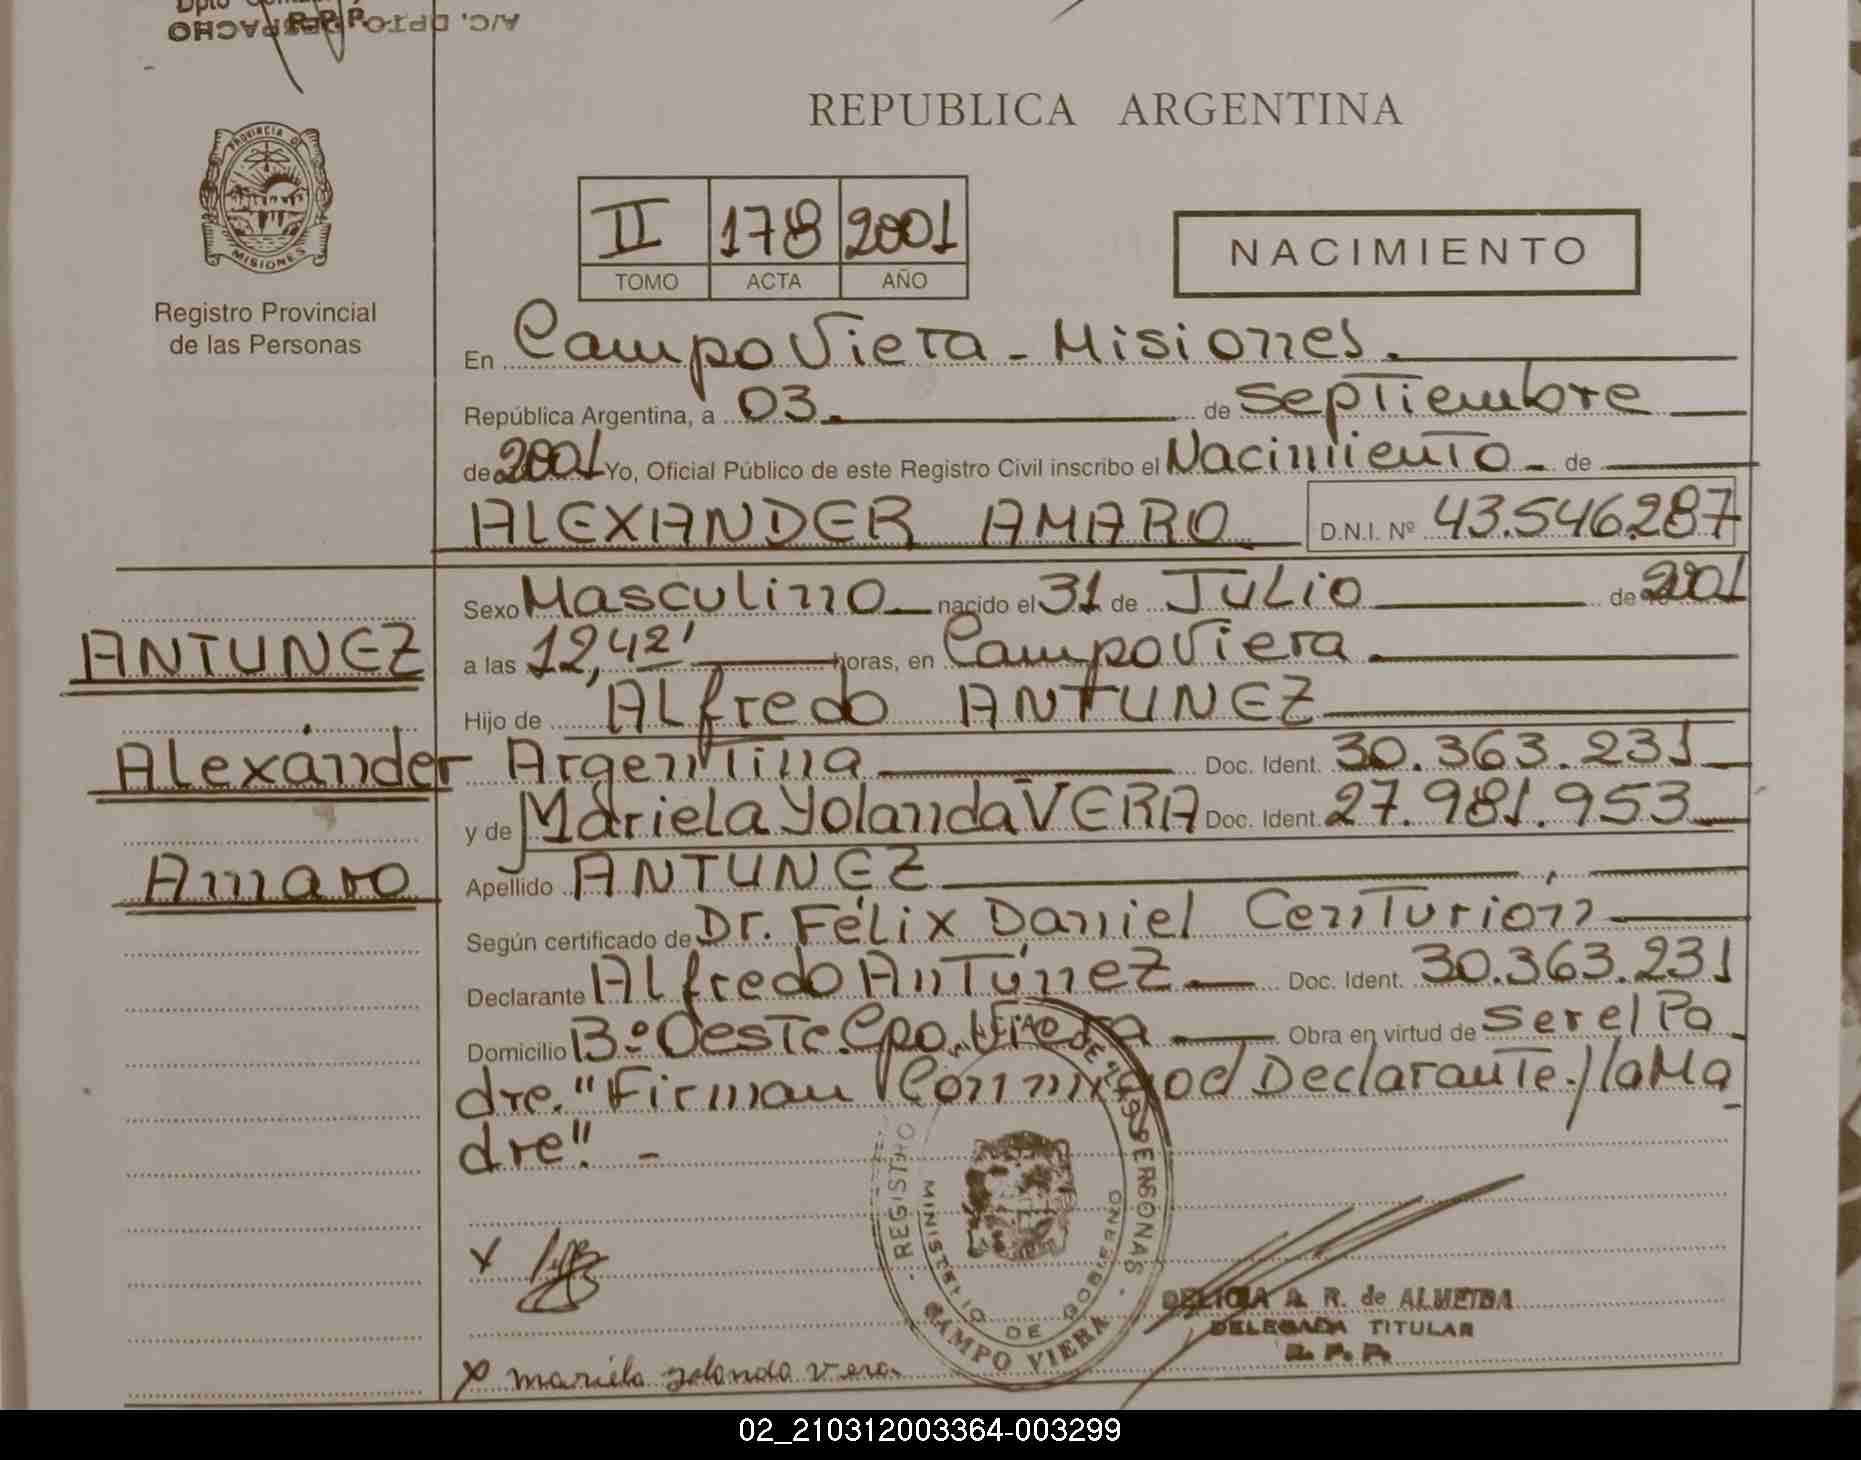 Dpto
R.P.P.
A/C. DPTO. DESPACHO
PROVINCIA DE
MISIONES
Registro Provincial
de las Personas
REPUBLICA ARGENTINA
II 178 2001
TOMO ACTA AÑO
NACIMIENTO
En Campo Viera - Misiones.
República Argentina, a 03. de septiembre
de 2001 Yo, Oficial Público de este Registro Civil inscribo el Nacimiento de
ALEXANDER AMARO D.N.I. Nº 43.546.287
Sexo Masculino nacido el 31 de Julio de 2001
ANTUNEZ
a las 12,42' horas, en Campo Viera.
Hijo de Alfredo ANTUNEZ
Alexánder
Argentina Doc. Ident. 30.363.231
y de Mariela Yolanda VERA Doc. Ident. 27.981.953
Amaro
Apellido ANTUNEZ
Según certificado de Dr. Félix Daniel Centurion
Declarante Alfredo Antúnez Doc. Ident. 30.363.231
Domicilio Bº Oeste. Cpo. Viera Obra en virtud de ser el Pa
dre. "Firman Conmigo el Declarante / la Ma
dre". -
REGISTRO DE LAS PERSONAS
MINISTERIO DE GOBIERNO
CAMPO VIERA
x
DELICIA A. R. de ALMEIDA
DELEGADA TITULAR
R. P. P.
x mariela yolanda vera
02_210312003364-003299